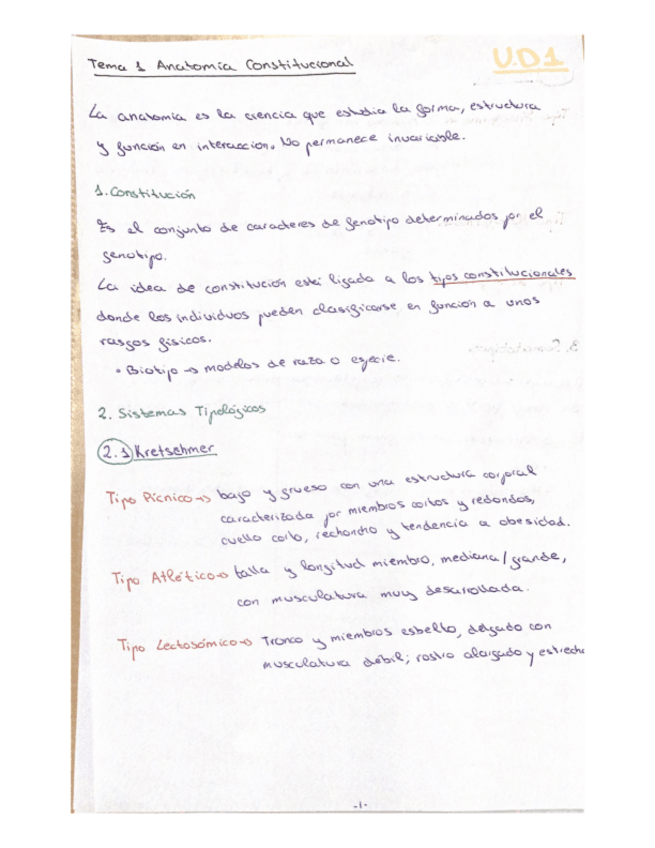 Tema 1 Anatomía Constitucional
U.D1
La anatomía es la ciencia que estudia la forma, estructura
y función en interacción. No permanece invariable.
1. Constitución
Es el conjunto de caracteres de genotipo determinados por el
genotipo.
La idea de constitución está ligada a los tipos constitucionales
donde los individuos pueden clasificarse en función a unos
rasgos físicos.
• Biotipo → modelos de raza o especie.
2. Sistemas Tipológicos
2.1 Kretschmer
Tipo Pícnico → bajo y grueso con una estructura corporal
caracterizada por miembros cortos y redondos,
cuello corto, rechoncho y tendencia a obesidad.
Tipo Atlético → talla y longitud miembro, mediana/grande,
con musculatura muy desarrollada.
Tipo Lectosómico → Tronco y miembros esbelto, delgado con
musculatura débil; rostro alargado y estrecho
-1-